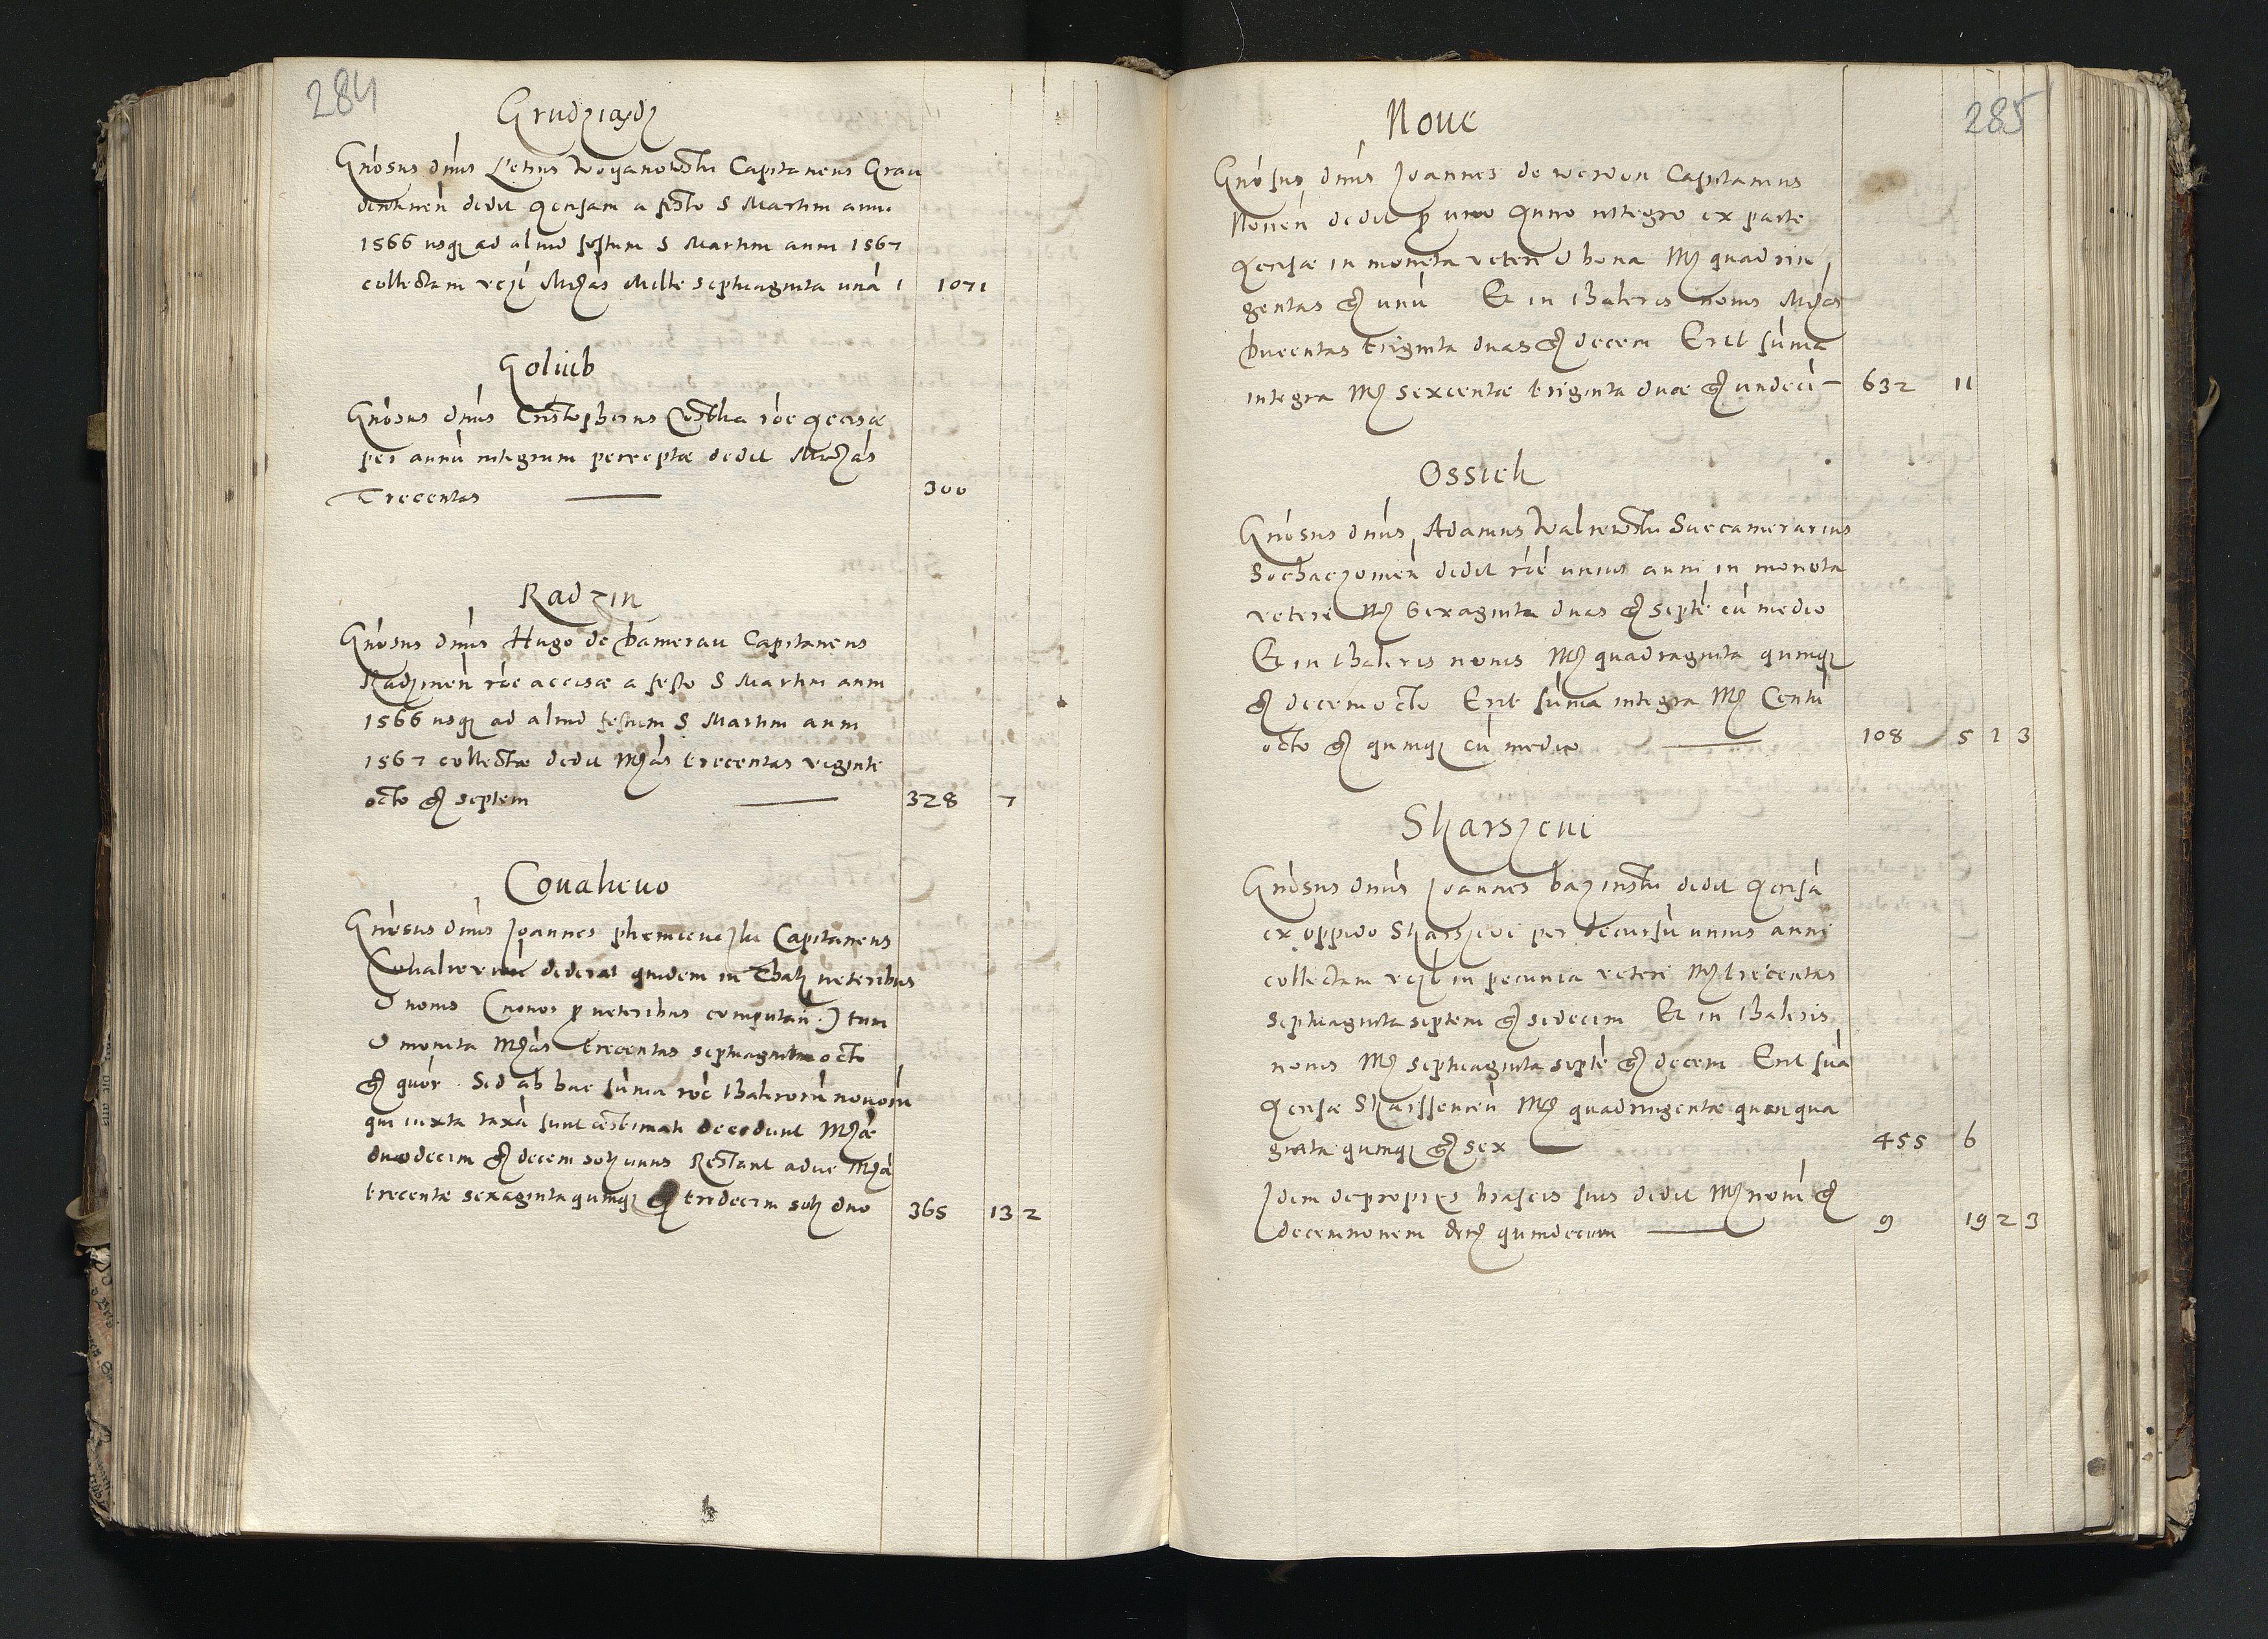 284
Grudziądz
Gn̄osus dn̄us Petrus Woyanowsky Capitaneus Grau
dentinen̄ dedit Accisam a festo S Martini anni
1566 usq ad aliud festum S Martini anni 1567
collectam recīt Mrcas Mille septuaginta unā 1 1071
Goliub
Gn̄osus dn̄us Cristopherus Costka rōe Accisæ
per annū integrum perceptæ dedit Mrcas
Trecentas 300
Radzin
Gn̄osus dn̄us Hugo de Damerau Capitaneus
Radzinen̄ rōe accisæ a festo S Martini anni
1566 usq ad aliud festum S Martini anni
1567 collectæ dedit Mrcas trecentas viginti
octo gr septem 328 7
Covalievo
Gn̄osus dn̄us Joannes Plemieczki Capitaneus
Covalieven̄ dederat quidem in Thal veteribus
& novis (novos p veteribus computan.) tum
& moneta Mrcas trecentas septuaginta octo
gr quor. Sed ab hac sum̄a rōe thalerorū novorū
qui iuxta taxā sunt æstimati decedunt Mrcæ
duodecim gr decem sol unus Restant aduc Mrcæ
trecentæ sexaginta quinq gr tredecim sol duo 365 13 2
285
Nove
Gn̄osus dn̄us Joannes de Werden Capitaneus
Noven̄ dedit p uno Anno integro ex parte
Accisæ in moneta veteri & bona Mr quadrin
gentas gr unū Et in thaleris novis Mrcas
Ducentas triginta duas gr decem Erit sum̄a
integra Mr sexcentæ triginta duæ gr undeci 632 11
Ossiek
Gn̄osus dn̄us Adamus Waliewsky Succamerarius
Sochaczovien̄ dedit rōe unius anni in moneta
veteri Mr Sexaginta duas gr septē cū medio
Et in thaleris novis Mr quadraginta quinq
gr decemocto Erit sum̄a integra Mr Centū
octo gr quinq cū medio 108 5 1 3
Skarszevi
Gn̄osus dn̄us Joannes Bazinsky dedit Accisā
ex oppido Skarszevi per decursū unius anni
collectam recīt in pecunia veteri Mr trecentas
septuaginta septem gr sedecim Et in thaleris
novis Mr septuaginta septē gr decem Erit sum̄a
Accisæ Skarssevien̄ Mr quadringentæ quinqua
ginta quinq gr sex 455 6
Idem de propriis braseis suis dedit Mr novē gr
decemnovem den quindecim 9 19 2 3